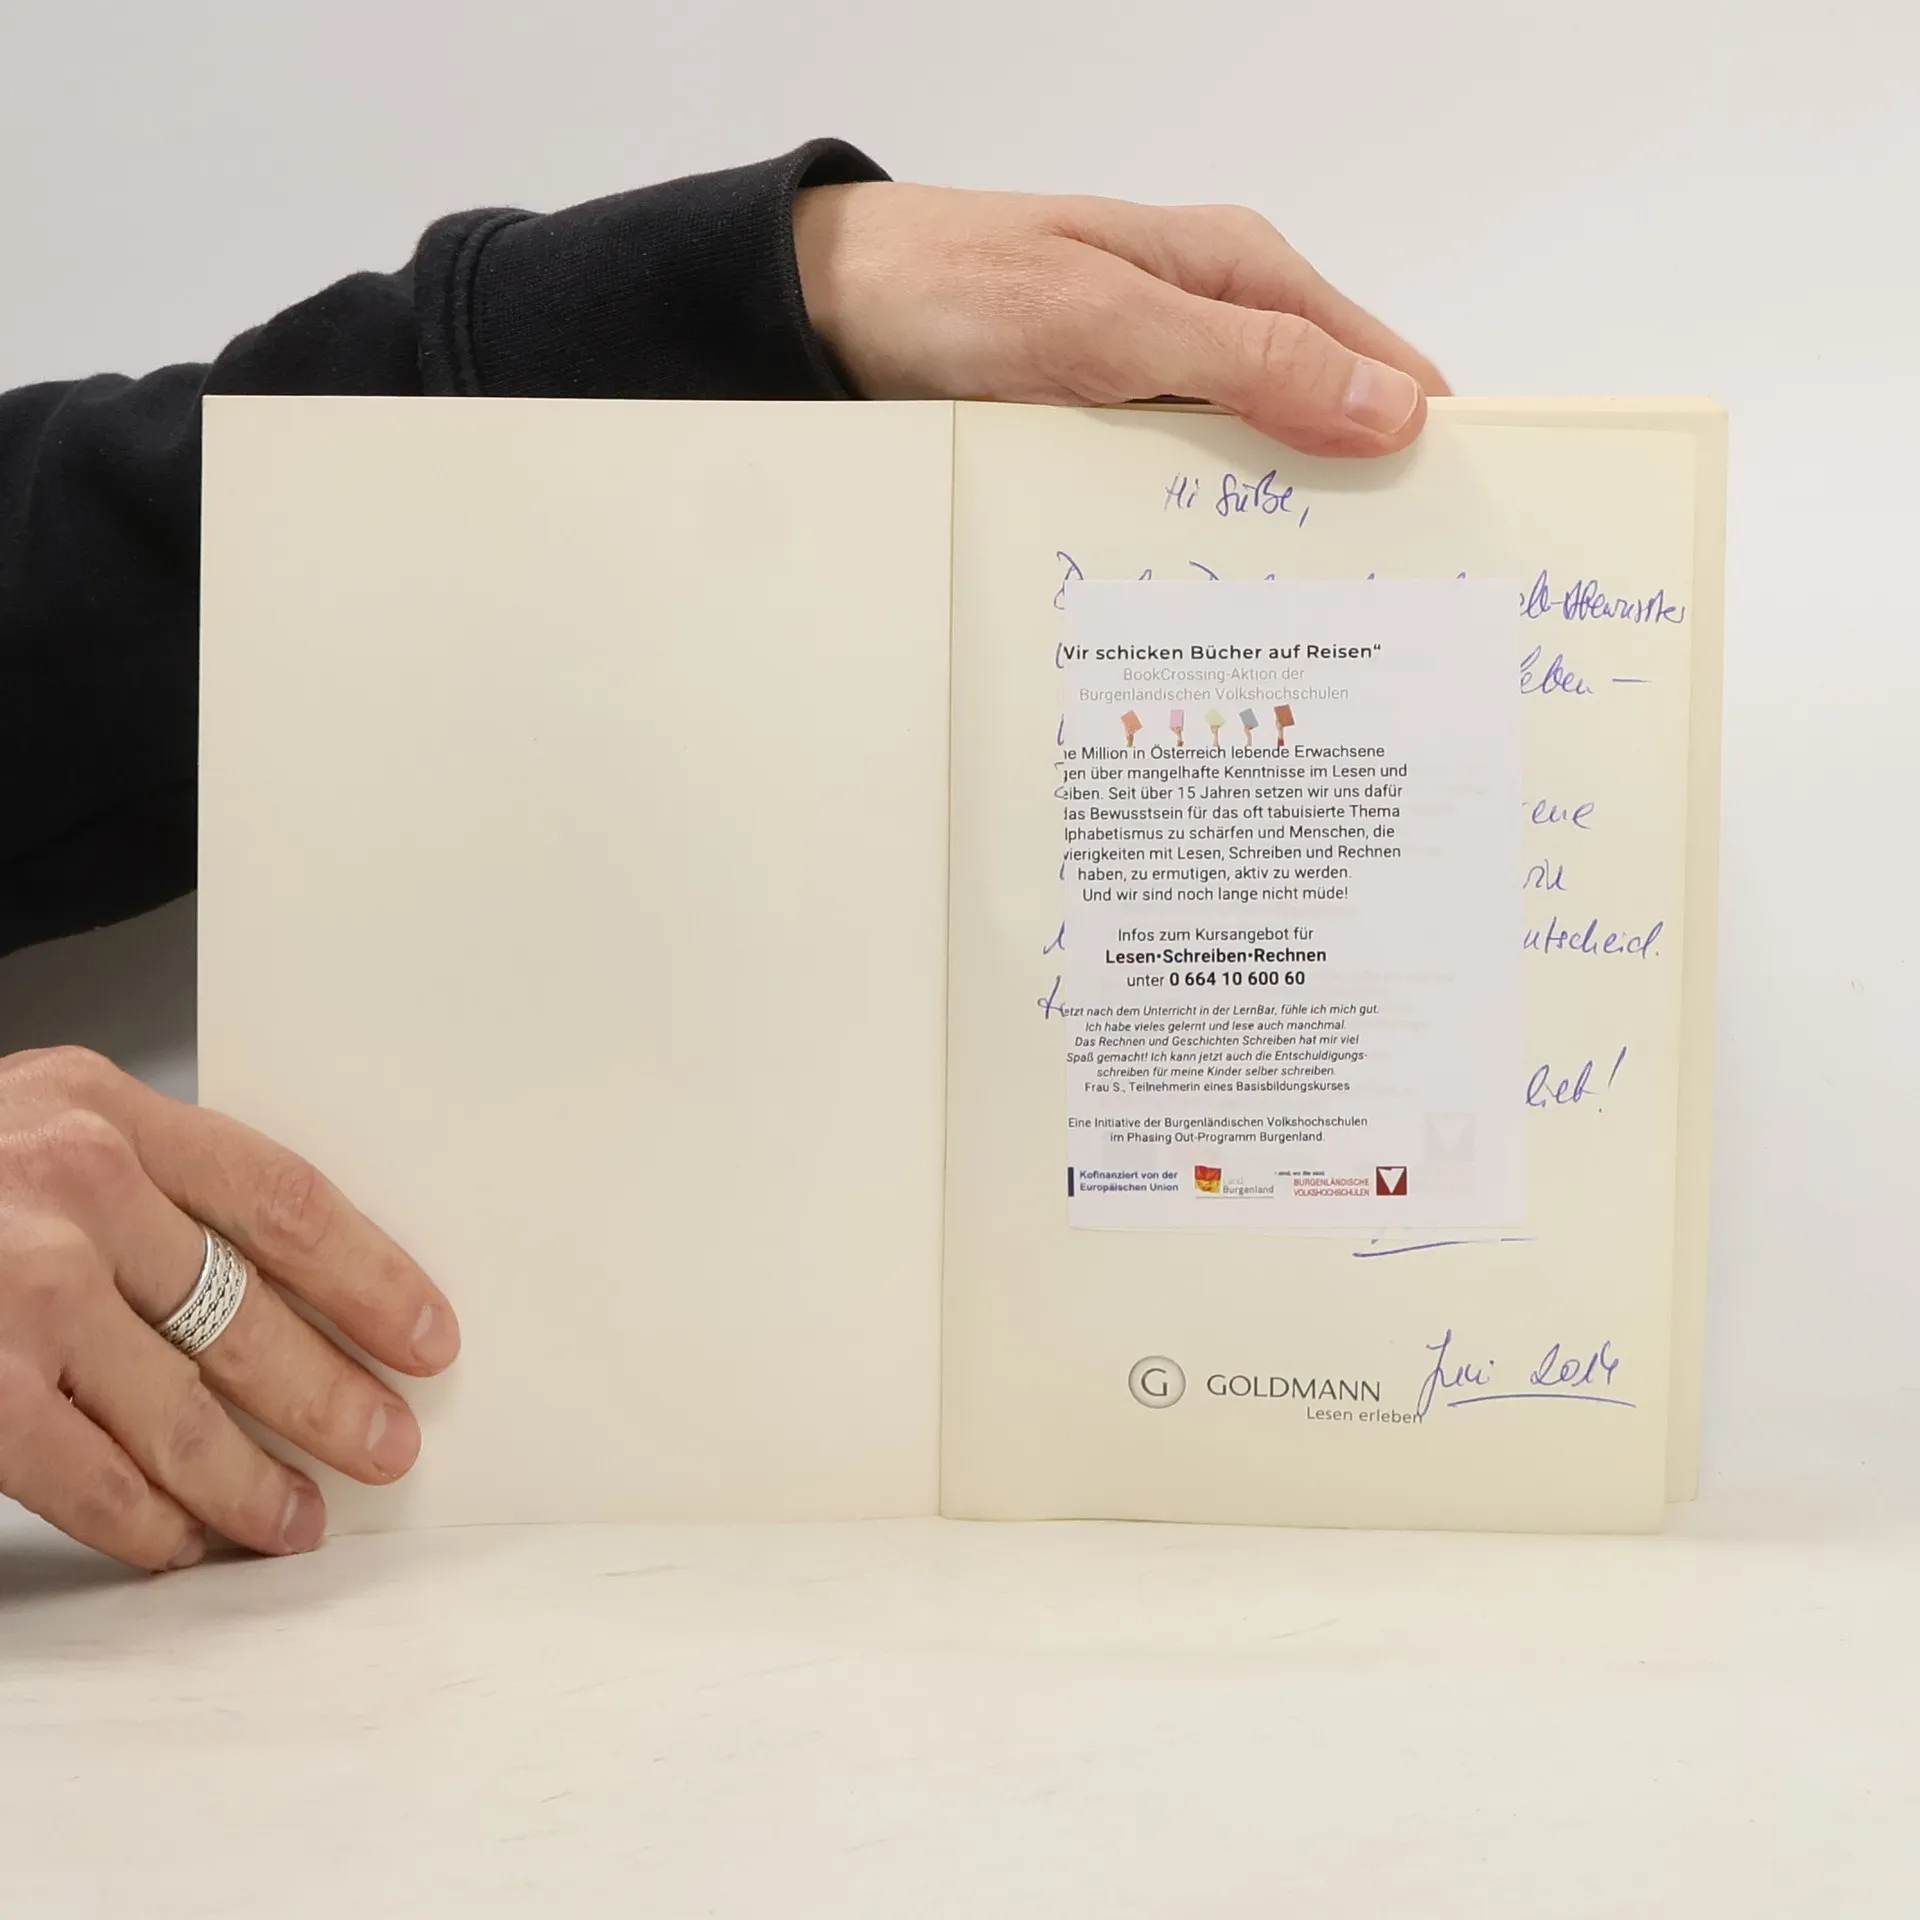 Hi Süße,
leben —
ene
zu
entscheid.
lieb!
Vir schicken Bücher auf Reisen“
BookCrossing-Aktion der
Burgenländischen Volkshochschulen
ne Million in Österreich lebende Erwachsene
gen über mangelhafte Kenntnisse im Lesen und
eiben. Seit über 15 Jahren setzen wir uns dafür
das Bewusstsein für das oft tabuisierte Thema
lphabetismus zu schärfen und Menschen, die
wierigkeiten mit Lesen, Schreiben und Rechnen
haben, zu ermutigen, aktiv zu werden.
Und wir sind noch lange nicht müde!
Infos zum Kursangebot für
Lesen•Schreiben•Rechnen
unter 0 664 10 600 60
etzt nach dem Unterricht in der LernBar, fühle ich mich gut.
Ich habe vieles gelernt und lese auch manchmal.
Das Rechnen und Geschichten Schreiben hat mir viel
Spaß gemacht! Ich kann jetzt auch die Entschuldigungs-
schreiben für meine Kinder selber schreiben.
Frau S., Teilnehmerin eines Basisbildungskurses
Eine Initiative der Burgenländischen Volkshochschulen
im Phasing Out-Programm Burgenland.
Kofinanziert von der
Europäischen Union
Land
Burgenland
BURGENLÄNDISCHE
VOLKSHOCHSCHULEN
G GOLDMANN
Lesen erleben
Juni 2014